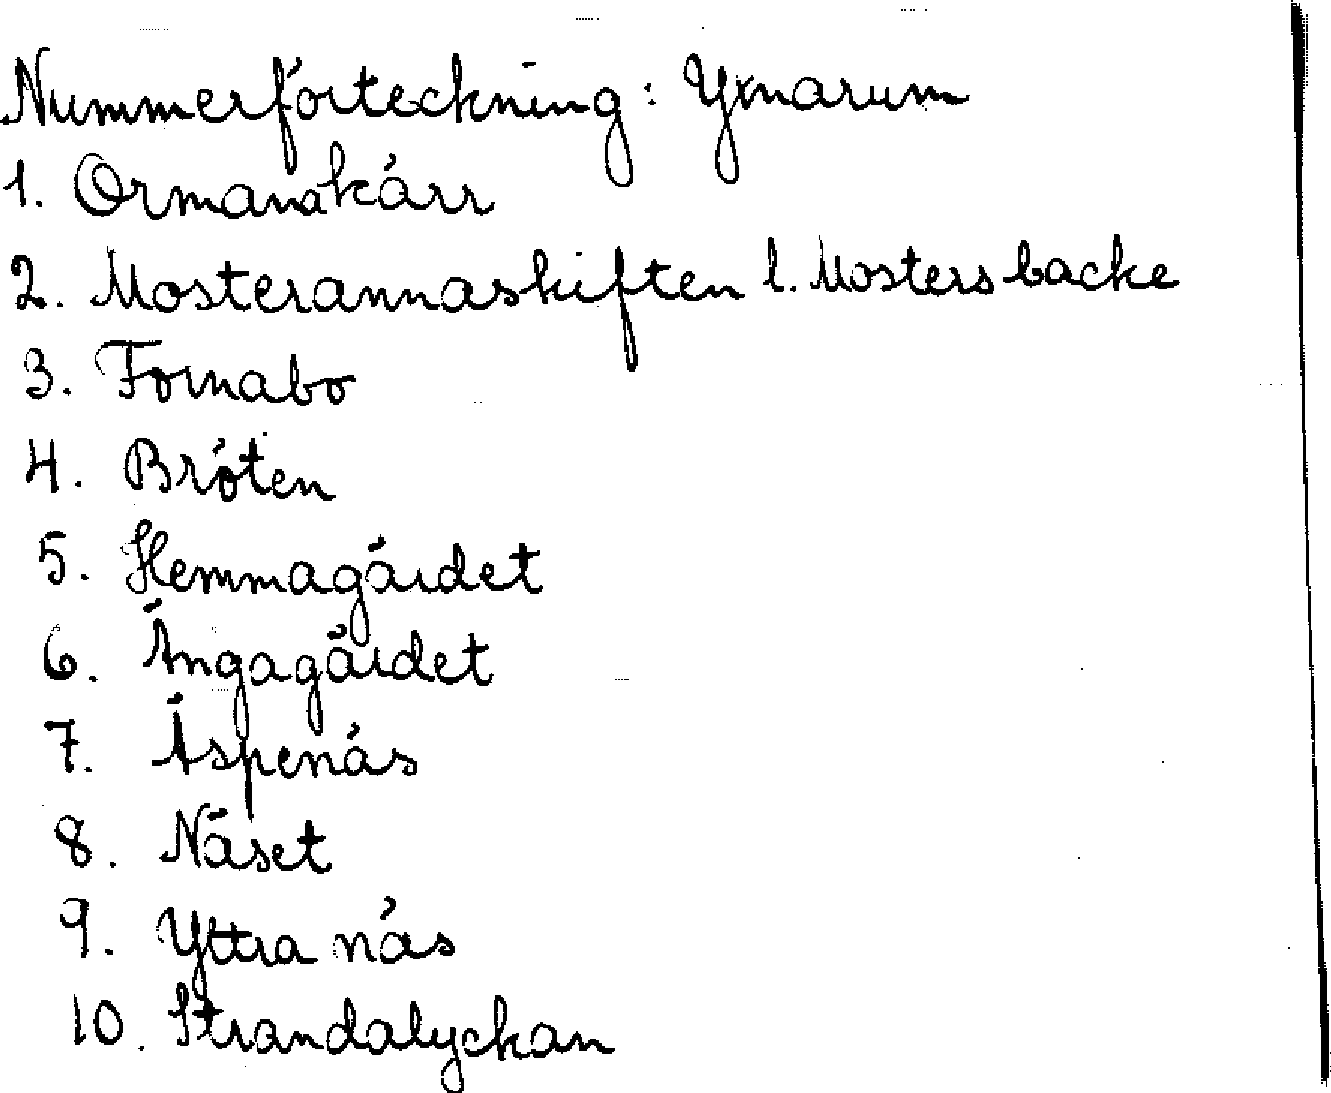 Nummerförteckning: Yxnarum
1. Ormanakärr
2. Mosterannaskiften l. Mostersbacke
3. Fornabo
4. Bröten
5. Hemmagärdet
6. Ängagärdet
7. Äspenäs
8. Näset
9. Yttra näs
10. Strandalyckan